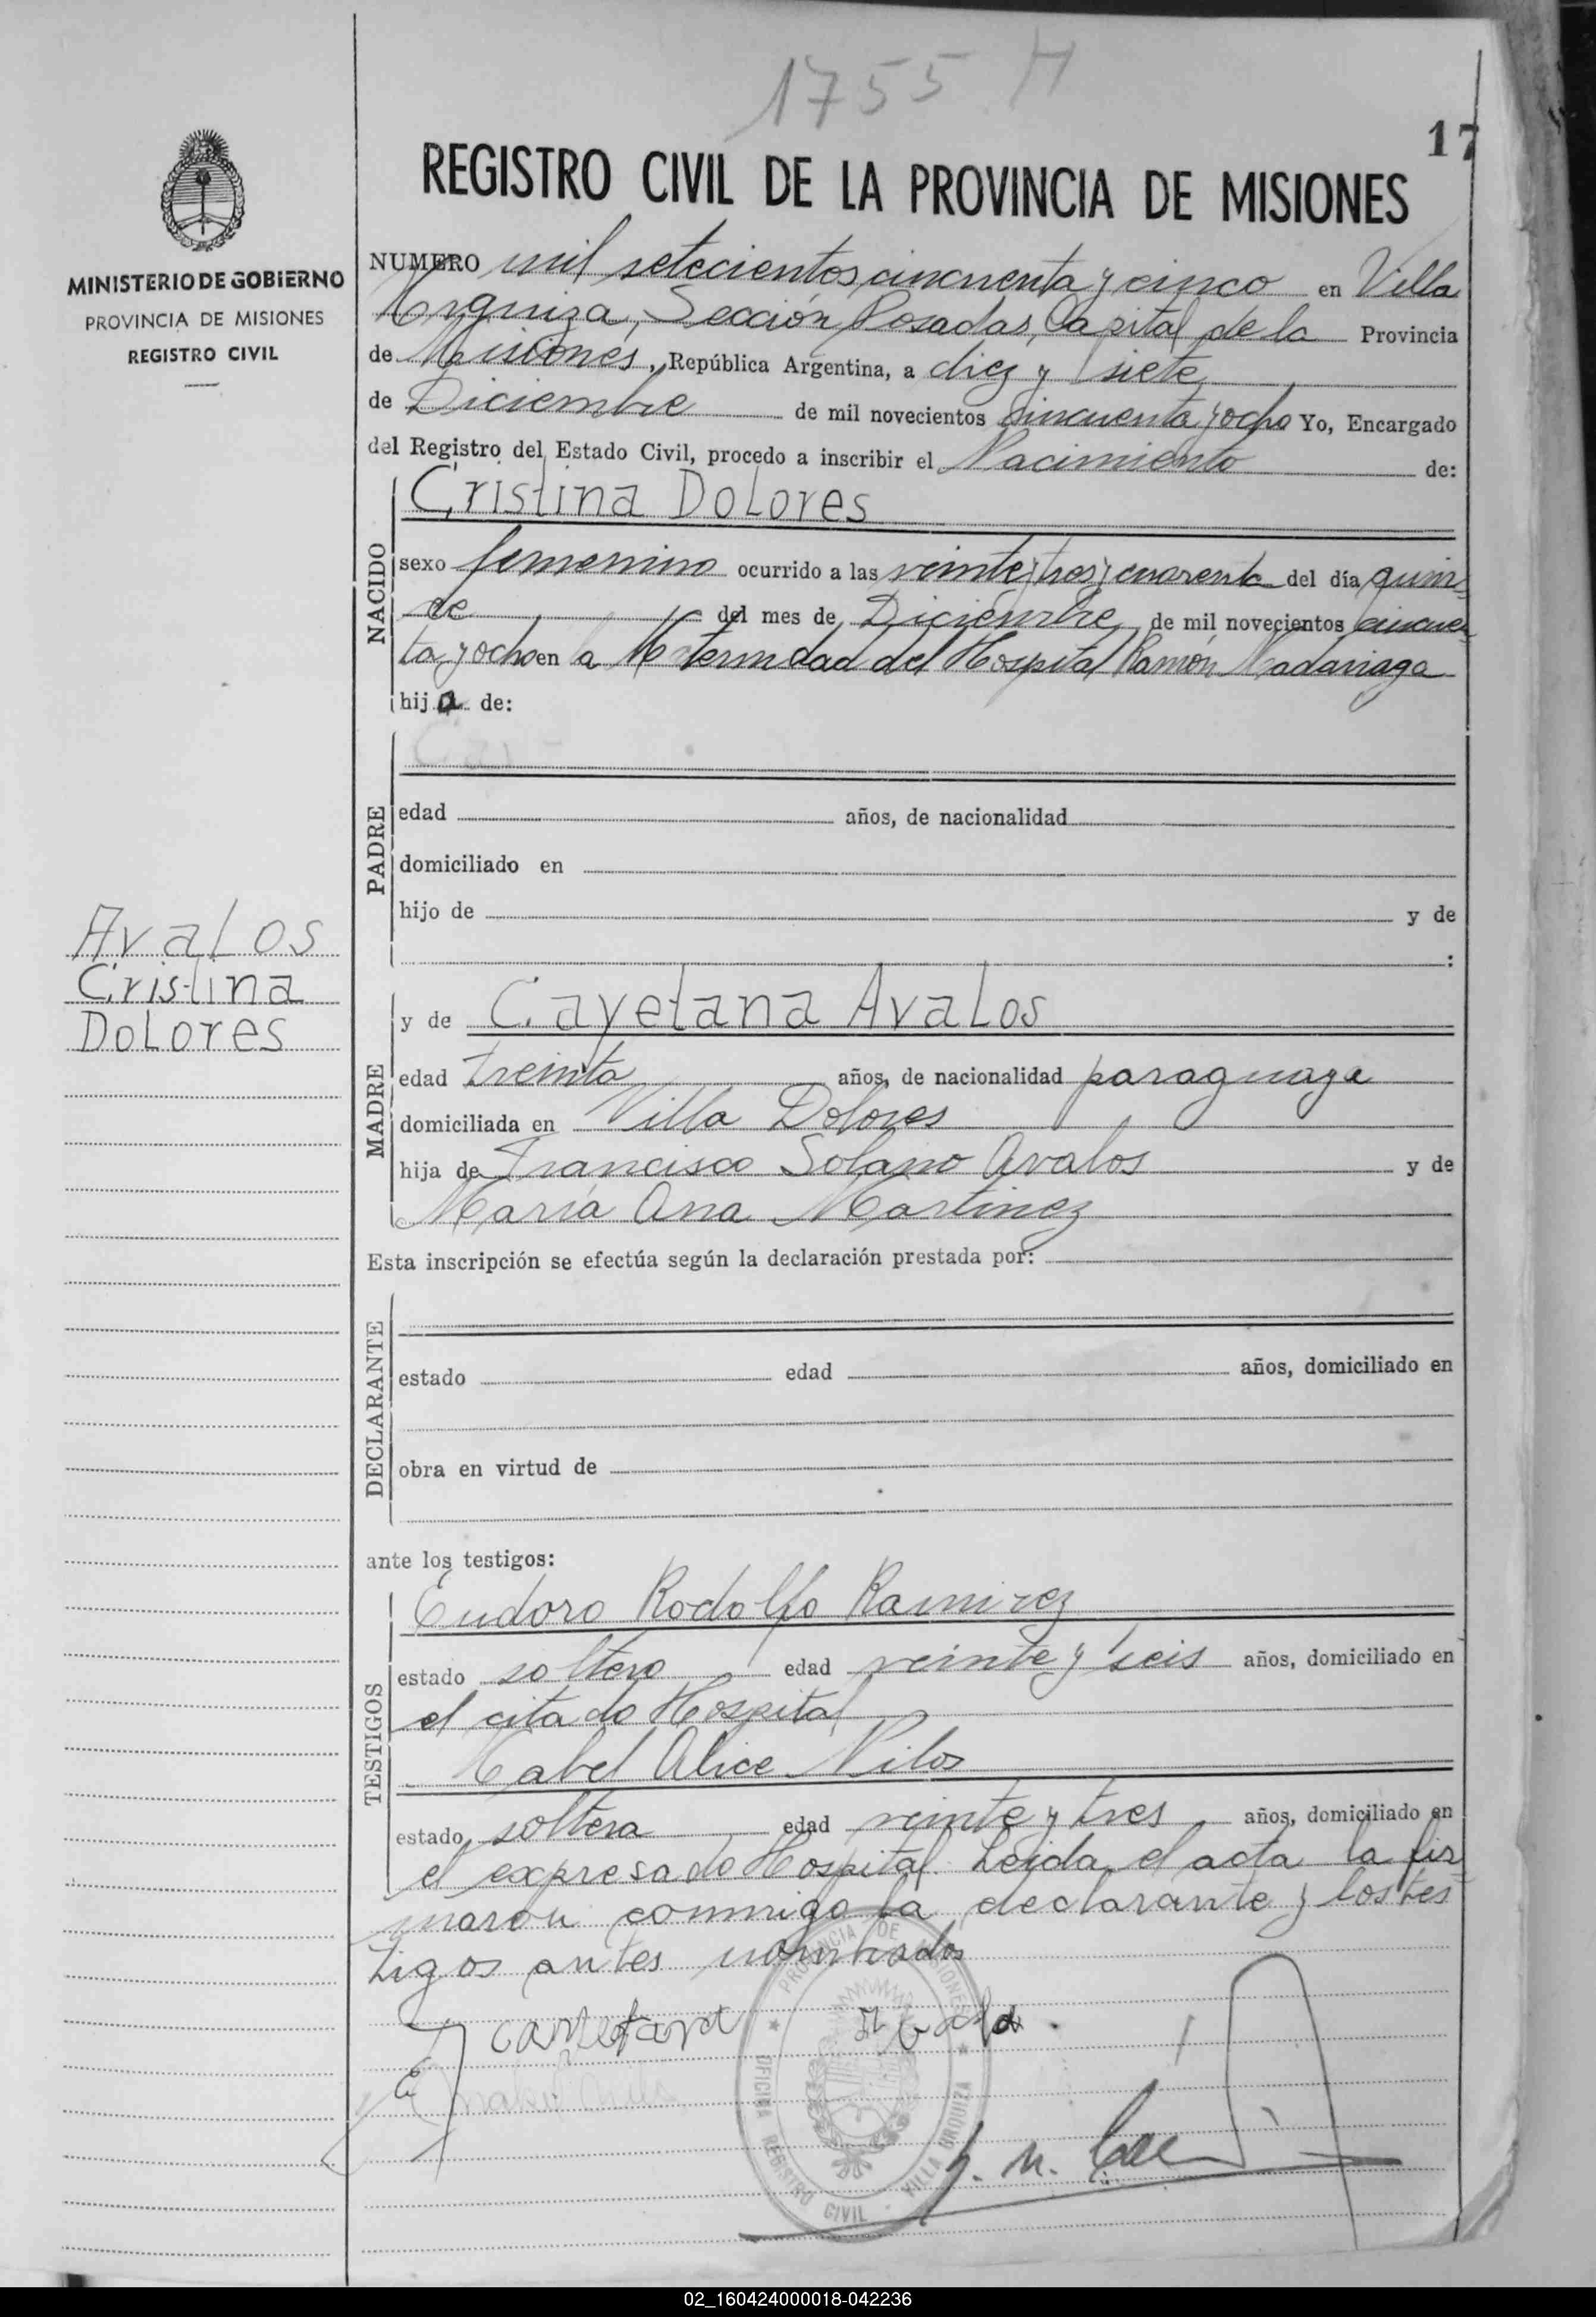 1755 M
17
REGISTRO CIVIL DE LA PROVINCIA DE MISIONES
MINISTERIO DE GOBIERNO
PROVINCIA DE MISIONES
REGISTRO CIVIL
NUMERO mil setecientos cincuenta y cinco en Villa
Urquiza, Sección Posadas, Capital de la Provincia
de Misiones, República Argentina, a diez y siete
de Diciembre de mil novecientos cincuenta y ocho Yo, Encargado
del Registro del Estado Civil, procedo a inscribir el Nacimiento de:
NACIDO
Cristina Dolores
sexo femenino ocurrido a las veinte y tres y cuarenta del día quin-
ce del mes de Diciembre de mil novecientos cincuen
ta y ocho en la Maternidad del Hospital Ramón Madariaga
hija de:
PADRE
edad años, de nacionalidad
domiciliado en
hijo de y de
:
Avalos
Cristina
Dolores
MADRE
y de Cayetana Avalos
edad treinta años, de nacionalidad paraguaya
domiciliada en Villa Dolores
hija de Francisco Solano Avalos y de
María Ana Martinez
Esta inscripción se efectúa según la declaración prestada por:
DECLARANTE
estado edad años, domiciliado en
obra en virtud de
ante los testigos:
TESTIGOS
Eudoro Rodolfo Ramirez
estado soltero edad veinte y seis años, domiciliado en
el citado Hospital
Mabel Alice Nilos
estado soltera edad veinte y tres años, domiciliado en
el expresado Hospital. Leida el acta la fir
maron conmigo la declarante y los tes
tigos antes nombrados
PROVINCIA DE MISIONES
OFICINA REGISTRO CIVIL - VILLA URQUIZA
02_160424000018-042236